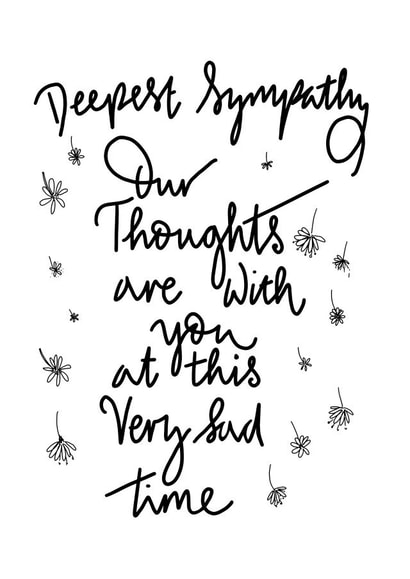 Deepest Sympathy
Our
Thoughts
are with
you
at this
Very sad
time